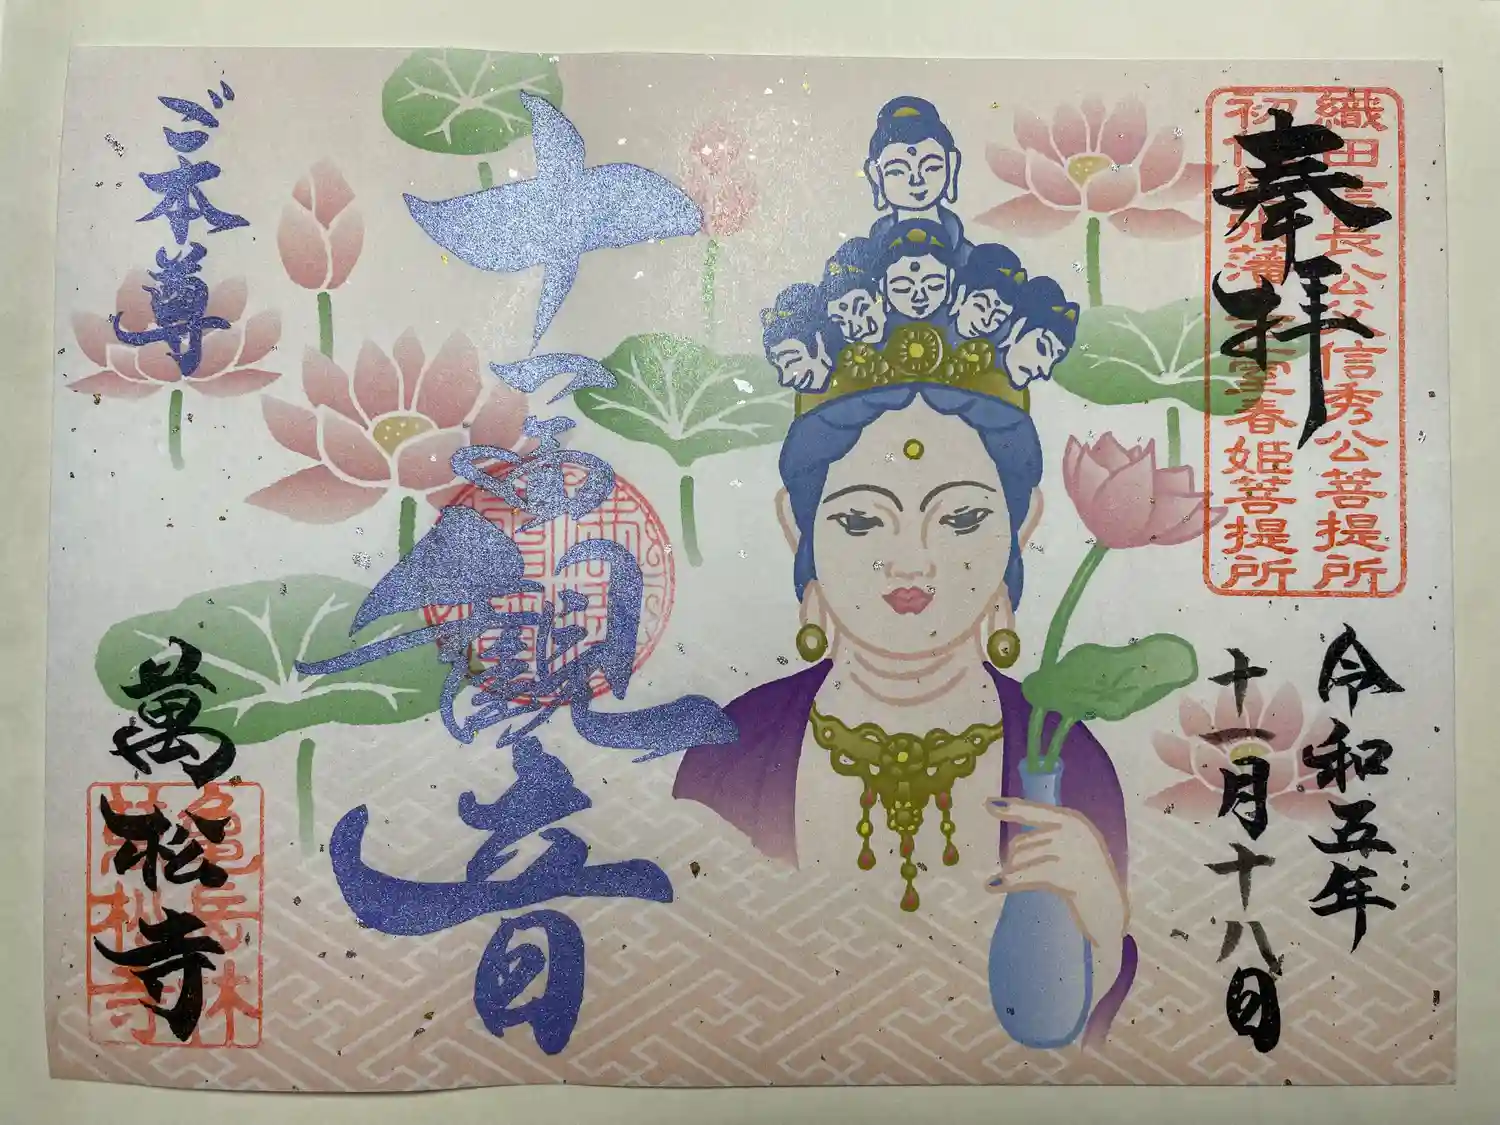 奉拝
織田信長公父信秀公菩提所
春姫菩提所
令和五年
十一月十八日
十一面観音
ご本尊
萬松寺
亀岳林
萬松寺